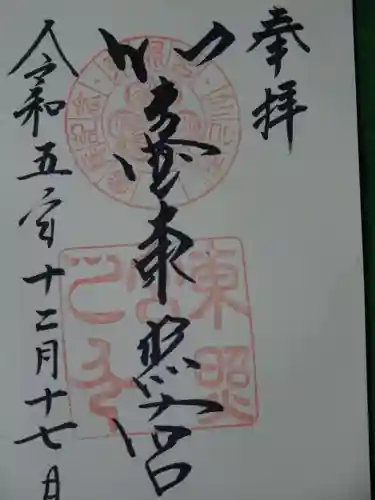 奉拝
東照宮
令和五年十二月十七日
東照宮之印